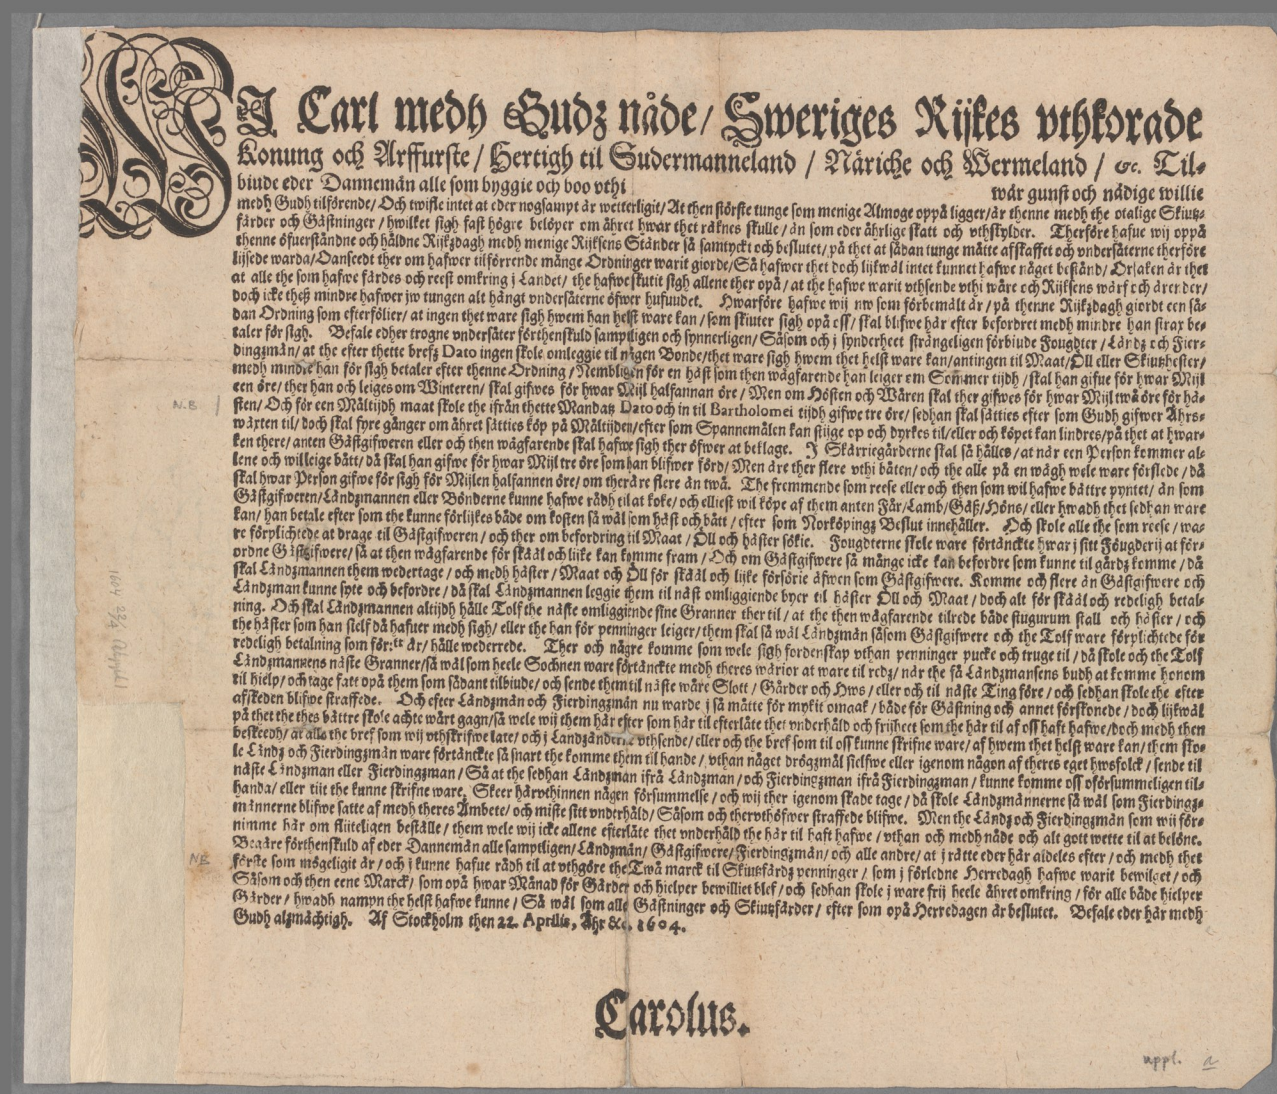 WJ Carl medh Gudz nåde/ Sweriges Rijkes vthkorade
Konung och Arffurste/ Hertigh til Sudermanneland / Näriche och Wermeland / &c. Til-
biude eder Dannemän alle som byggie och boo vthi wår gunst och nådige willie
medh Gudh tilförende/ Och twifle intet at eder nogsampt är wetterligit/ At then störste tunge som menige Almoge oppå ligger/ är thenne medh the otalige Skiutz-
färder och Gästninger / hwilket sigh fast högre belöper om åhret hwar thet räknes skulle / än som eder åhrlige skatt och vthskylder. Therföre hafue wij oppå
thenne öfuerståndne och håldne Rijkzdagh medh menige Rijksens Ständer så samtyckt och beslutet/ på thet at sådan tunge måtte affskaffet och vndersåterne therföre
lijsede warda/ Oanseedt ther om hafwer tilförrende månge Ordninger warit giorde/ Så hafwer thet doch lijkwäl intet kunnet hafwe någet bestånd/ Orsaken är thet
at alle the som hafwe färdes och reest omkring j Landet/ the hafwe skutit sigh allene ther opå/ at the hafwe warit vthsende vthi wåre och Rijksens wärf och ärender/
doch icke theß mindre hafwer jw tungen alt hängt vndersåterne öfwer hufuudet. Hwarföre hafwe wij nw som förbemält är/ på thenne Rijkzdagh giordt een så-
dan Ordning som efterfölier/ at ingen thet ware sigh hwem han helst ware kan/ som skiuter sigh opå oss/ skal blifwe här efter befordret medh mindre han strax be-
taler för sigh. Befale edher trogne vndersåter förthenskuld samptligen och synnerligen/ Såsom och j synderheet strängeligen förbiude Foughter/ Ländz och Fier-
dingzmän/ at the efter thette brefz Dato ingen skole omleggie til någen Bonde/ thet ware sigh hwem thet helst ware kan/ antingen til Maat/ Öll eller Skiutzhester/
medh mindre han för sigh betaler efter thenne Ordning / Nembligen för en häst som then wägfarende han leiger om Sommer tijdh / skal han gifue för hwar Mijl
een öre/ ther han och leiges om Winteren/ skal gifwes för hwar Mijl halfannan öre/ Men om Hösten och Wåren skal ther gifwes för hwar Mijl twå öre för hä-
N.B. sten/ Och för een Måltijdh maat skole the ifrån thette Mandatz Dato och in til Bartholomei tijdh gifwe tre öre/ sedhan skal sätties efter som Gudh gifwer Åhrs-
wäxten til/ doch skal fyre gånger om åhret sätties köp på Måltijden/ efter som Spannemålen kan stijge op och dyrkes til/ eller och köpet kan lindres/ på thet at hwar-
ken there/ anten Gästgifweren eller och then wägfarende skal hafwe sigh ther öfwer at beklage. J Skärriegårderne skal så hålles/ at när een Person kommer al-
lene och willeige bått/ då skal han gifwe för hwar Mijl tre öre som han blifwer förd/ Men äre ther flere vthi båten/ och the alle på en wägh wele ware förslede / då
skal hwar Person gifwe för sigh för Mijlen halfannen öre/ om there äre flere än twå. The fremmende som reese eller och then som wil hafwe bättre pyntet/ än som
Gästgifweren/ Ländzmannen eller Bönderne kunne hafwe rådh til at koke/ och elliest wil köpe af them anten Får/ Lamb/ Gåß/ Höns/ eller hwadh thet sedhan ware
kan/ han betale efter som the kunne förlijkes både om kosten så wäl som häst och bått / efter som Norköpingz Beslut innehåller. Och skole alle the som reese/ wa-
re förplichtede at drage til Gästgifweren/ och ther om befordring til Maat / Öll och häster sökie. Fougdterne skole ware förtänckte hwar j sitt Fougderij at för-
ordne Gästgifwere/ så at then wägfarende för skääl och lijke kan komme fram / Och om Gästgifwere så månge icke kan befordre som kunne til gårdz komme/ då
skal Ländzmannen them wedertage / och medh häster / Maat och Öll för skääl och lijke försörie äfwen som Gästgifwere. Komme och flere än Gästgifwere och
Ländzman kunne syte och befordre/ då skal Ländzmannen leggie them til näst omliggiende byer til häster Öll och Maat / doch alt för skääl och redeligh betal-
ning. Och skal Ländzmannen altijdh hålle Tolf the näste omliggiende sine Granner ther til/ at the then wägfarende tilrede både stugurum stall och häster / och
the häster som han sielf då hafuer medh sigh/ eller the han för penninger leiger/ them skal så wäl Ländzmän såsom Gästgifwere och the Tolf ware förplichtede för
redeligh betalning som för:tt är/ hålle wederrede. Ther och någre komme som wele sigh fordenskap vthan penninger pucke och truge til / då skole och the Tolf
Ländzmannens näste Granner/ så wäl som heele Sochnen ware förtänckte medh theres wärior at ware til redz/ när the få Ländzmansens budh at komme honom
til hielp/ och tage fatt opå them som sådant tilbiude/ och sende them til näste wåre Slott / Gårder och Hws / eller och til näste Ting före / och sedhan skole the efter
affskeden blifwe straffede. Och efter Ländzmän och Fierdingzmän nu warde j så måtte för mykit omaak / både för Gästning och annet förskonede / doch lijkwäl
på thet the thes bättre skole achte wårt gagn/ så wele wij them här efter som här til efterlåte thet vnderhåld och frijheet som the här til af oss haft hafwe/ doch medh then
beskeedh/ at alle the bref som wij vthskrifwe late/ och j Landzänderne vthsende/ eller och the bref som til oss kunne skrifne ware/ af hwem thet helst ware kan/ them sko-
le Ländz och Fierdingzmän ware förtänckte så snart the komme them til hande / vthan något drögzmål sielfwe eller igenom någon af theres eget hwsfolck/ sende til
näste Ländzman eller Fierdingzman/ Så at the sedhan Ländzman ifrå Ländzman / och Fierdingzman ifrå Fierdingzman / kunne komme oss oförsummeligen til-
handa/ eller tiit the kunne skrifne ware. Skeer härvthinnen någen försummelse / och wij ther igenom skade tage/ då skole Ländzmännerne så wäl som Fierdingz-
männerne blifwe satte af medh theres Ämbete/ och miste sitt vnderhåld/ Såsom och thervthöfwer straffede blifwe. Men the Ländz och Fierdingzmän som wij för-
nimme här om flijteligen beställe / them wele wij icke allene efterlåte thet vnderhåld the här til haft hafwe / vthan och medh nåde och alt gott wette til at belöne.
NB. Begäre förthenskuld af eder Dannemän alle samptligen/ Ländzmän/ Gästgifwere/ Fierdingzmän/ och alle andre/ at j rätte eder här aldeles efter / och medh thet
förste som möyeligit är / och j kunne hafue rådh til at vthgöre the Twå marck til Skiutzfärdz penninger / som j förledne Herredagh hafwe warit bewilget / och
Såsom och then eene Marck/ som opå hwar Månad för Gärder och hielper bewilliet blef / och sedhan skole j ware frij heele åhret omkring / för alle både hielper
Gärder / hwadh namyn the helst hafwe kunne / Så wäl som alle Gästninger och Skiutzfärder / efter som opå Herredagen är beslutet. Befale eder här medh
Gudh alzmächtigh. Af Stockholm then 22. Aprilis, Åhr &c. 1604.
Carolus.
1604 22/4 (Uppl.)
uppl. a